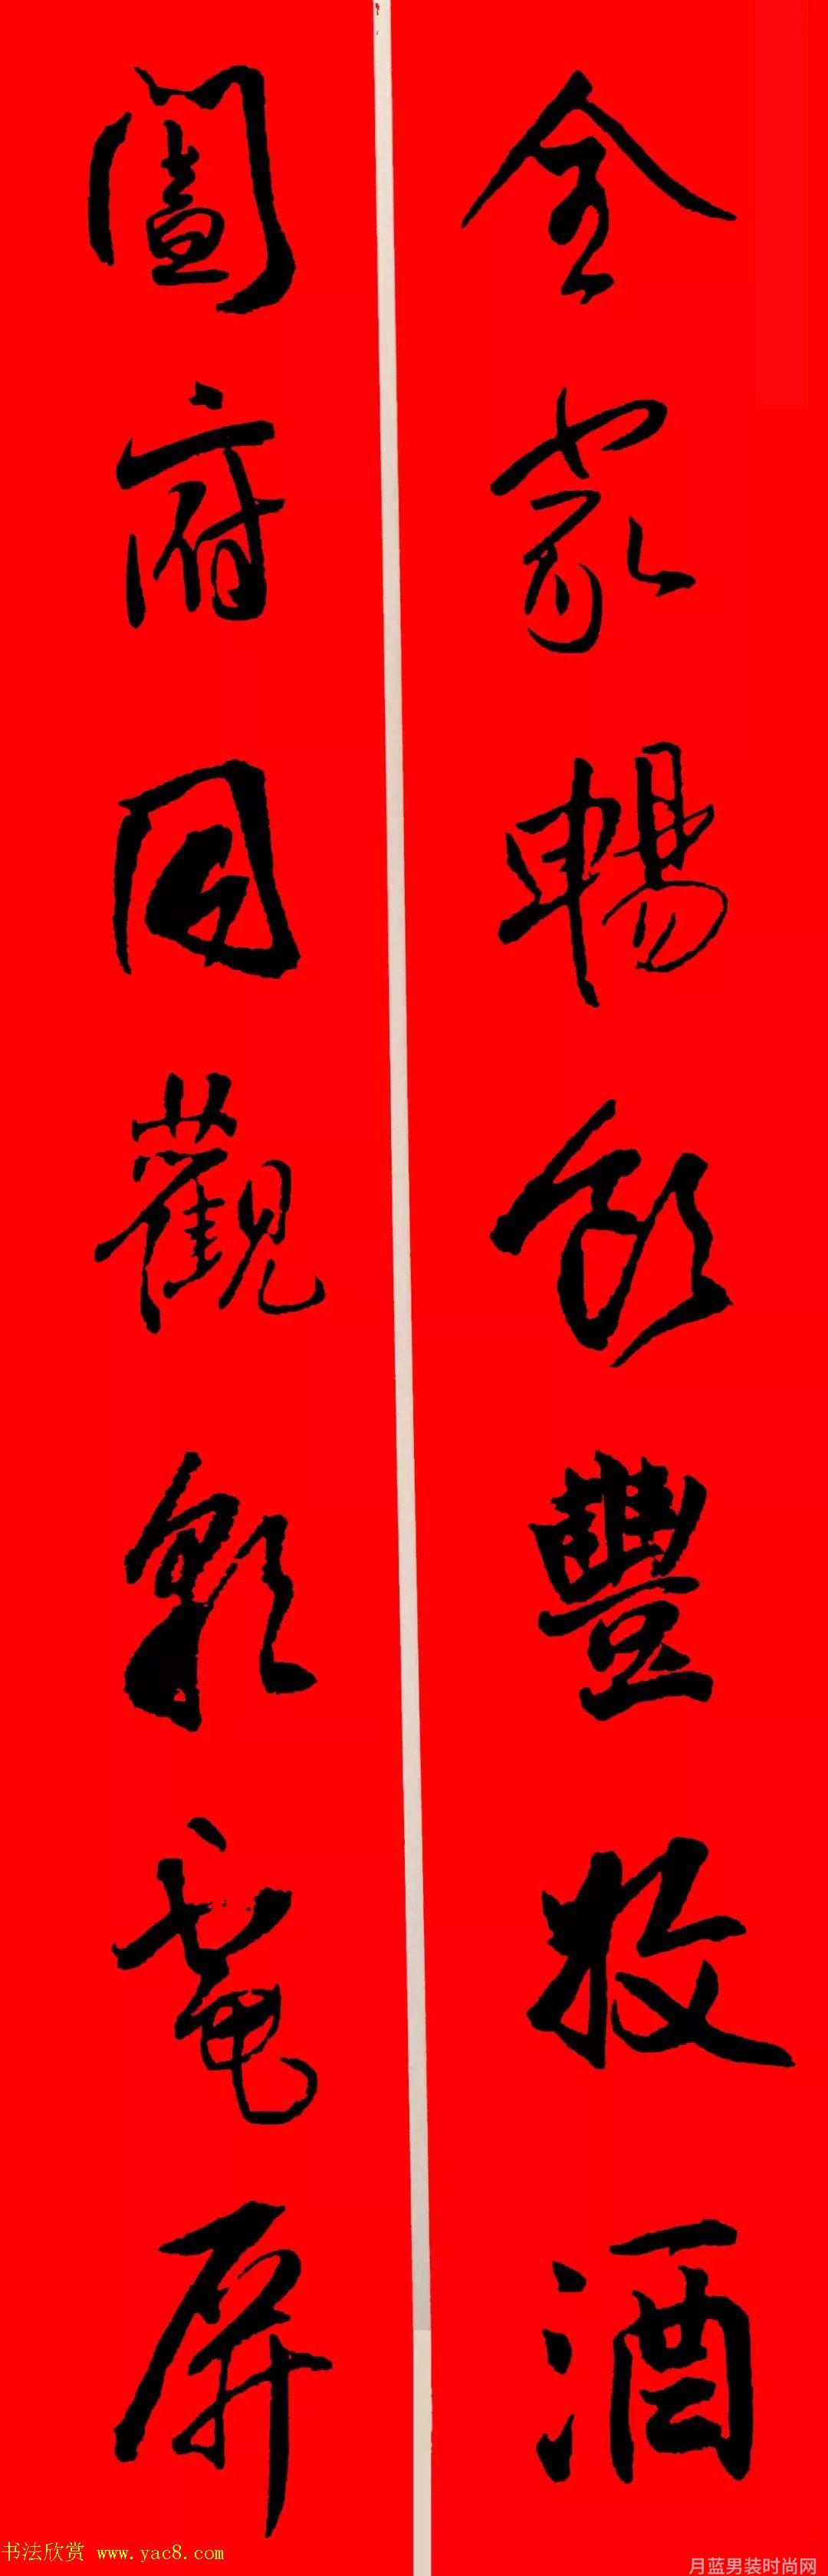 全家暢飲豐收酒
闔府同觀彩電屏
书法欣赏 www.yac8.com
月蓝男装时尚网